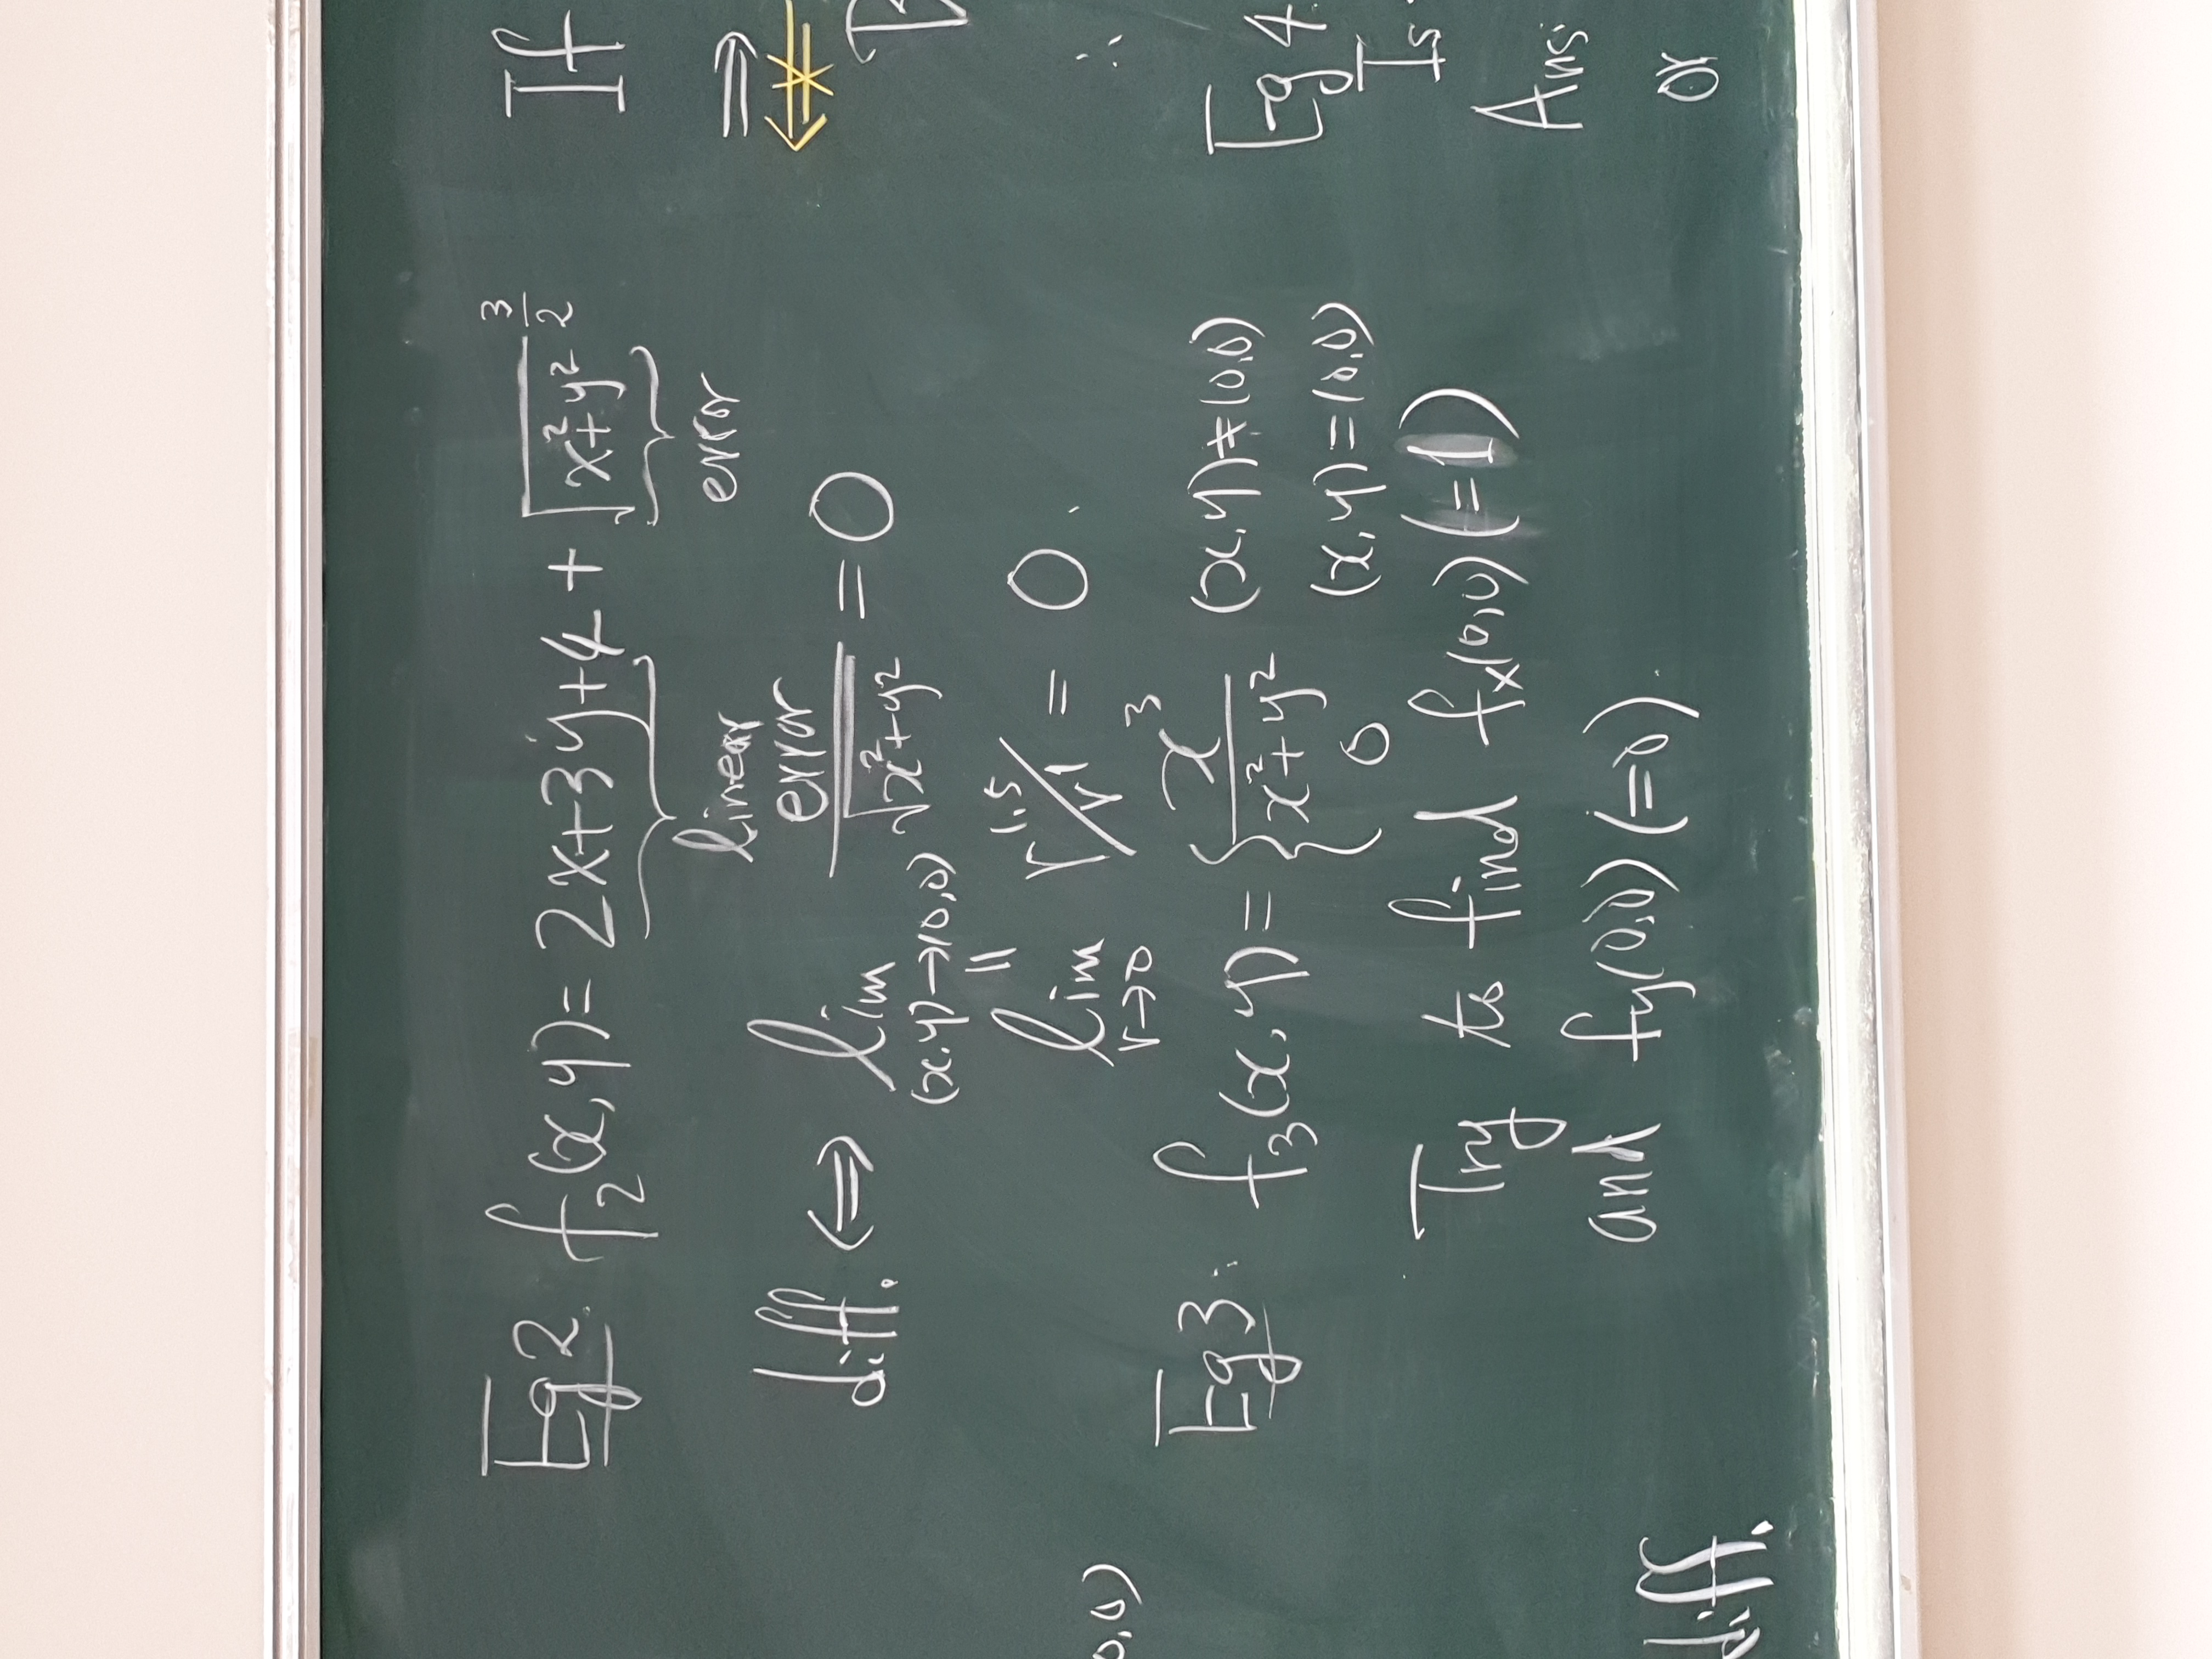 Eg2. f₂(x,y) = 2x+3y+4 + √(x²+y²)^(3/2)
linear error
diff. ⇔ lim (x,y)→(0,0) error/√(x²+y²) = 0
||
lim r→0 r^1.5/r^1 = 0.
Eg3. f₃(x,y) = { x³/(x²+y²) (x,y)≠(0,0)
0 (x,y)=(0,0)
Try to find fx(0,0) (=1)
and fy(0,0) (=0).
0,0)
diff.
If
⇒
∴
Eg4.
Is
Ans:
or